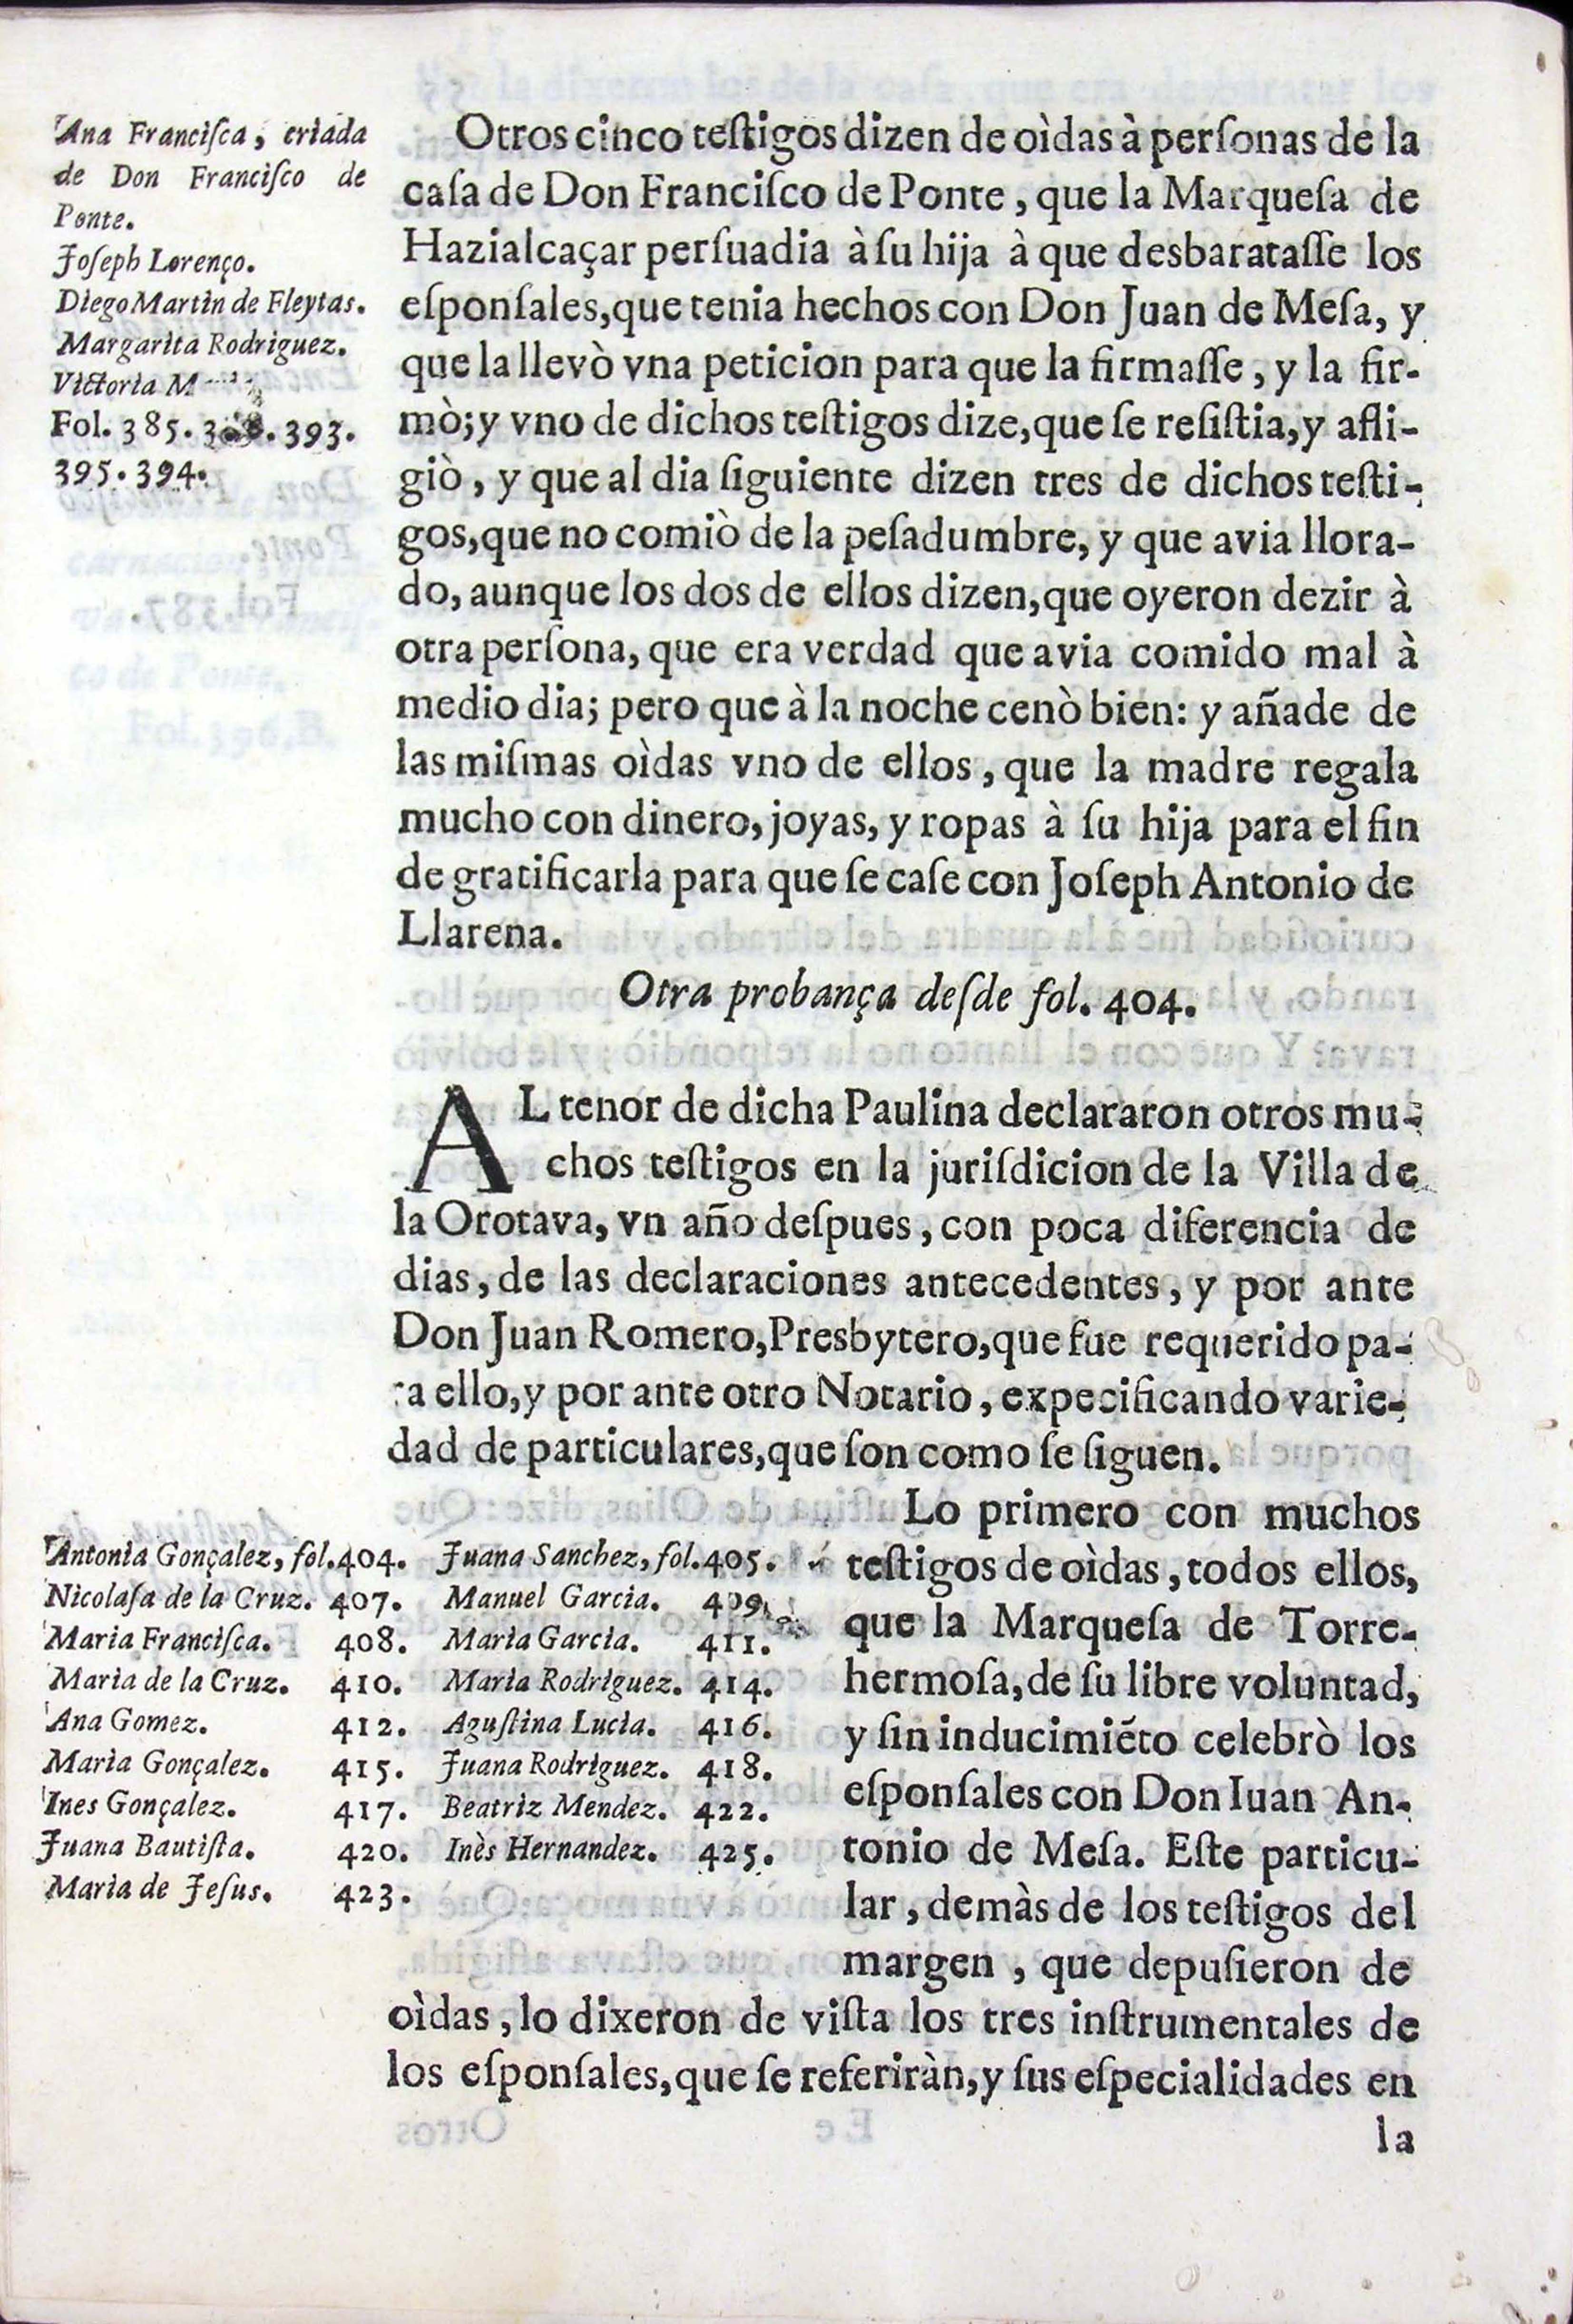 Ana Franciſca, criada
de Don Franciſco de
Ponte.
Joſeph Lorenço.
Diego Martin de Fleytas.
Margarita Rodriguez.
Victoria
Fol. 385. 393.
395. 394.
Otros cinco teſtigos dizen de oìdas à perſonas de la
caſa de Don Franciſco de Ponte, que la Marqueſa de
Hazialcaçar perſuadia à ſu hija à que desbarataſſe los
eſponſales, que tenia hechos con Don Juan de Meſa, y
que la llevò vna peticion para que la firmaſſe, y la fir-
mò; y vno de dichos teſtigos dize, que ſe reſiſtia, y afli-
giò, y que al dia ſiguiente dizen tres de dichos teſti-
gos, que no comiò de la peſadumbre, y que avia llora-
do, aunque los dos de ellos dizen, que oyeron dezir à
otra perſona, que era verdad que avia comido mal à
medio dia; pero que à la noche cenò bien: y añade de
las miſmas oìdas vno de ellos, que la madre regala
mucho con dinero, joyas, y ropas à ſu hija para el fin
de gratificarla para que ſe caſe con Joſeph Antonio de
Llarena.
Otra probança deſde fol. 404.
AL tenor de dicha Paulina declararon otros mu-
chos teſtigos en la juriſdicion de la Villa de
la Orotava, vn año deſpues, con poca diferencia de
dias, de las declaraciones antecedentes, y por ante
Don Juan Romero, Presbytero, que fue requerido pa-
ra ello, y por ante otro Notario, expecificando varie-
dad de particulares, que ſon como ſe ſiguen.
Antonia Gonçalez, fol. 404. Juana Sanchez, fol. 405.
Nicolaſa de la Cruz. 407. Manuel Garcia. 409.
Maria Franciſca. 408. Maria Garcia. 411.
Maria de la Cruz. 410. Maria Rodriguez. 414.
Ana Gomez. 412. Aguſtina Lucia. 416.
Maria Gonçalez. 415. Juana Rodriguez. 418.
Ines Gonçalez. 417. Beatriz Mendez. 422.
Juana Bautiſta. 420. Inès Hernandez. 425.
Maria de Jeſus. 423.
Lo primero con muchos
teſtigos de oìdas, todos ellos,
que la Marqueſa de Torre-
hermoſa, de ſu libre voluntad,
y ſin inducimiẽto celebrò los
eſponſales con Don Iuan An-
tonio de Meſa. Eſte particu-
lar, demàs de los teſtigos del
margen, que depuſieron de
oìdas, lo dixeron de viſta los tres inſtrumentales de
los eſponſales, que ſe referiràn, y ſus eſpecialidades en
la